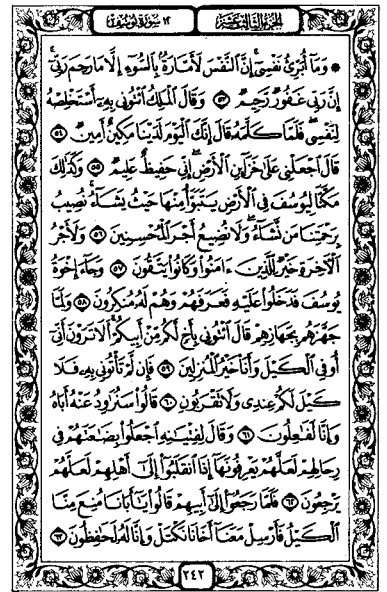 الجزء الثالث عشر ١٢ سورة يوسف
۞ وَمَآ أُبَرِّئُ نَفْسِىٓ إِنَّ ٱلنَّفْسَ لَأَمَّارَةُۢ بِٱلسُّوٓءِ إِلَّا مَا رَحِمَ رَبِّىٓ
إِنَّ رَبِّى غَفُورٌ رَّحِيمٌ ٥٣ وَقَالَ ٱلْمَلِكُ ٱئْتُونِى بِهِۦٓ أَسْتَخْلِصْهُ
لِنَفْسِى فَلَمَّا كَلَّمَهُۥ قَالَ إِنَّكَ ٱلْيَوْمَ لَدَيْنَا مَكِينٌ أَمِينٌ ٥٤
قَالَ ٱجْعَلْنِى عَلَىٰ خَزَآئِنِ ٱلْأَرْضِ إِنِّى حَفِيظٌ عَلِيمٌ ٥٥ وَكَذَٰلِكَ
مَكَّنَّا لِيُوسُفَ فِى ٱلْأَرْضِ يَتَبَوَّأُ مِنْهَا حَيْثُ يَشَآءُ نُصِيبُ
بِرَحْمَتِنَا مَن نَّشَآءُ وَلَا نُضِيعُ أَجْرَ ٱلْمُحْسِنِينَ ٥٦ وَلَأَجْرُ
ٱلْأَخِرَةِ خَيْرٌ لِّلَّذِينَ ءَامَنُوا۟ وَكَانُوا۟ يَتَّقُونَ ٥٧ وَجَآءَ إِخْوَةُ
يُوسُفَ فَدَخَلُوا۟ عَلَيْهِ فَعَرَفَهُمْ وَهُمْ لَهُۥ مُنكِرُونَ ٥٨ وَلَمَّا
جَهَّزَهُم بِجَهَازِهِمْ قَالَ ٱئْتُونِى بِأَخٍ لَّكُم مِّنْ أَبِيكُمْ أَلَا تَرَوْنَ أَنِّىٓ
أُوفِى ٱلْكَيْلَ وَأَنَا۠ خَيْرُ ٱلْمُنزِلِينَ ٥٩ فَإِن لَّمْ تَأْتُونِى بِهِۦ فَلَا
كَيْلَ لَكُمْ عِندِى وَلَا تَقْرَبُونِ ٦٠ قَالُوا۟ سَنُرَٰوِدُ عَنْهُ أَبَاهُ
وَإِنَّا لَفَٰعِلُونَ ٦١ وَقَالَ لِفِتْيَٰنِهِ ٱجْعَلُوا۟ بِضَٰعَتَهُمْ فِى
رِحَالِهِمْ لَعَلَّهُمْ يَعْرِفُونَهَآ إِذَا ٱنقَلَبُوٓا۟ إِلَىٰٓ أَهْلِهِمْ لَعَلَّهُمْ
يَرْجِعُونَ ٦٢ فَلَمَّا رَجَعُوٓا۟ إِلَىٰٓ أَبِيهِمْ قَالُوا۟ يَٰٓأَبَانَا مُنِعَ مِنَّا
ٱلْكَيْلُ فَأَرْسِلْ مَعَنَآ أَخَانَا نَكْتَلْ وَإِنَّا لَهُۥ لَحَٰفِظُونَ ٦٣
٢٤٢